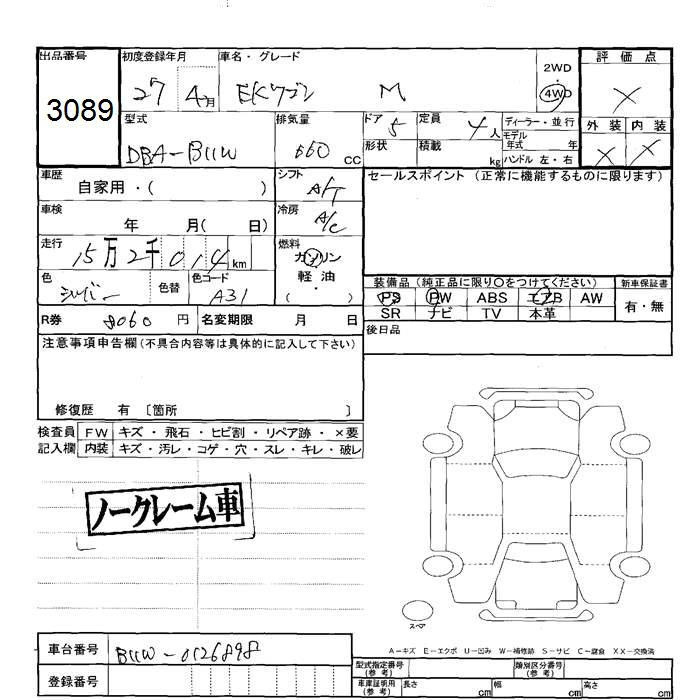 出品番号 初度登録年月 車名・グレード 評価点
3089 27 4月 EKワゴン M 2WD 4WD X
型式 排気量 ドア 5 定員 4人 ディーラー・並行 外装 内装
DBA-B11W 660 CC 形状 積載 kg モデル年式 年 ハンドル 左・右 X X
車歴 自家用・( ) シフト A/T セールスポイント (正常に機能するものに限ります)
車検 年 月( 日) 冷房 A/C
走行 15万2千014km 燃料 ガソリン
色 シルバー 色替 色コード A31 軽油・( )
装備品 (純正品に限り○をつけてください) 新車保証書
PS PW ABS エアB AW 有・無
R券 8060 円 名変期限 月 日 SR ナビ TV 本革
後日品
注意事項申告欄(不具合内容等は具体的に記入して下さい)
修復歴 有 〔箇所 〕
検査員 FW キズ・飛石・ヒビ割・リペア跡・×要
記入欄 内装 キズ・汚レ・コゲ・穴・スレ・キレ・破レ
ノークレーム車
スペア
A－キズ E－エクボ U－凹み W－補修跡 S－サビ C－腐食 XX－交換済
車台番号 B11W-0126898 型式指定番号(参考) 類別区分番号(参考)
登録番号 車庫証明用(参考) 長さ cm 幅 cm 高さ cm